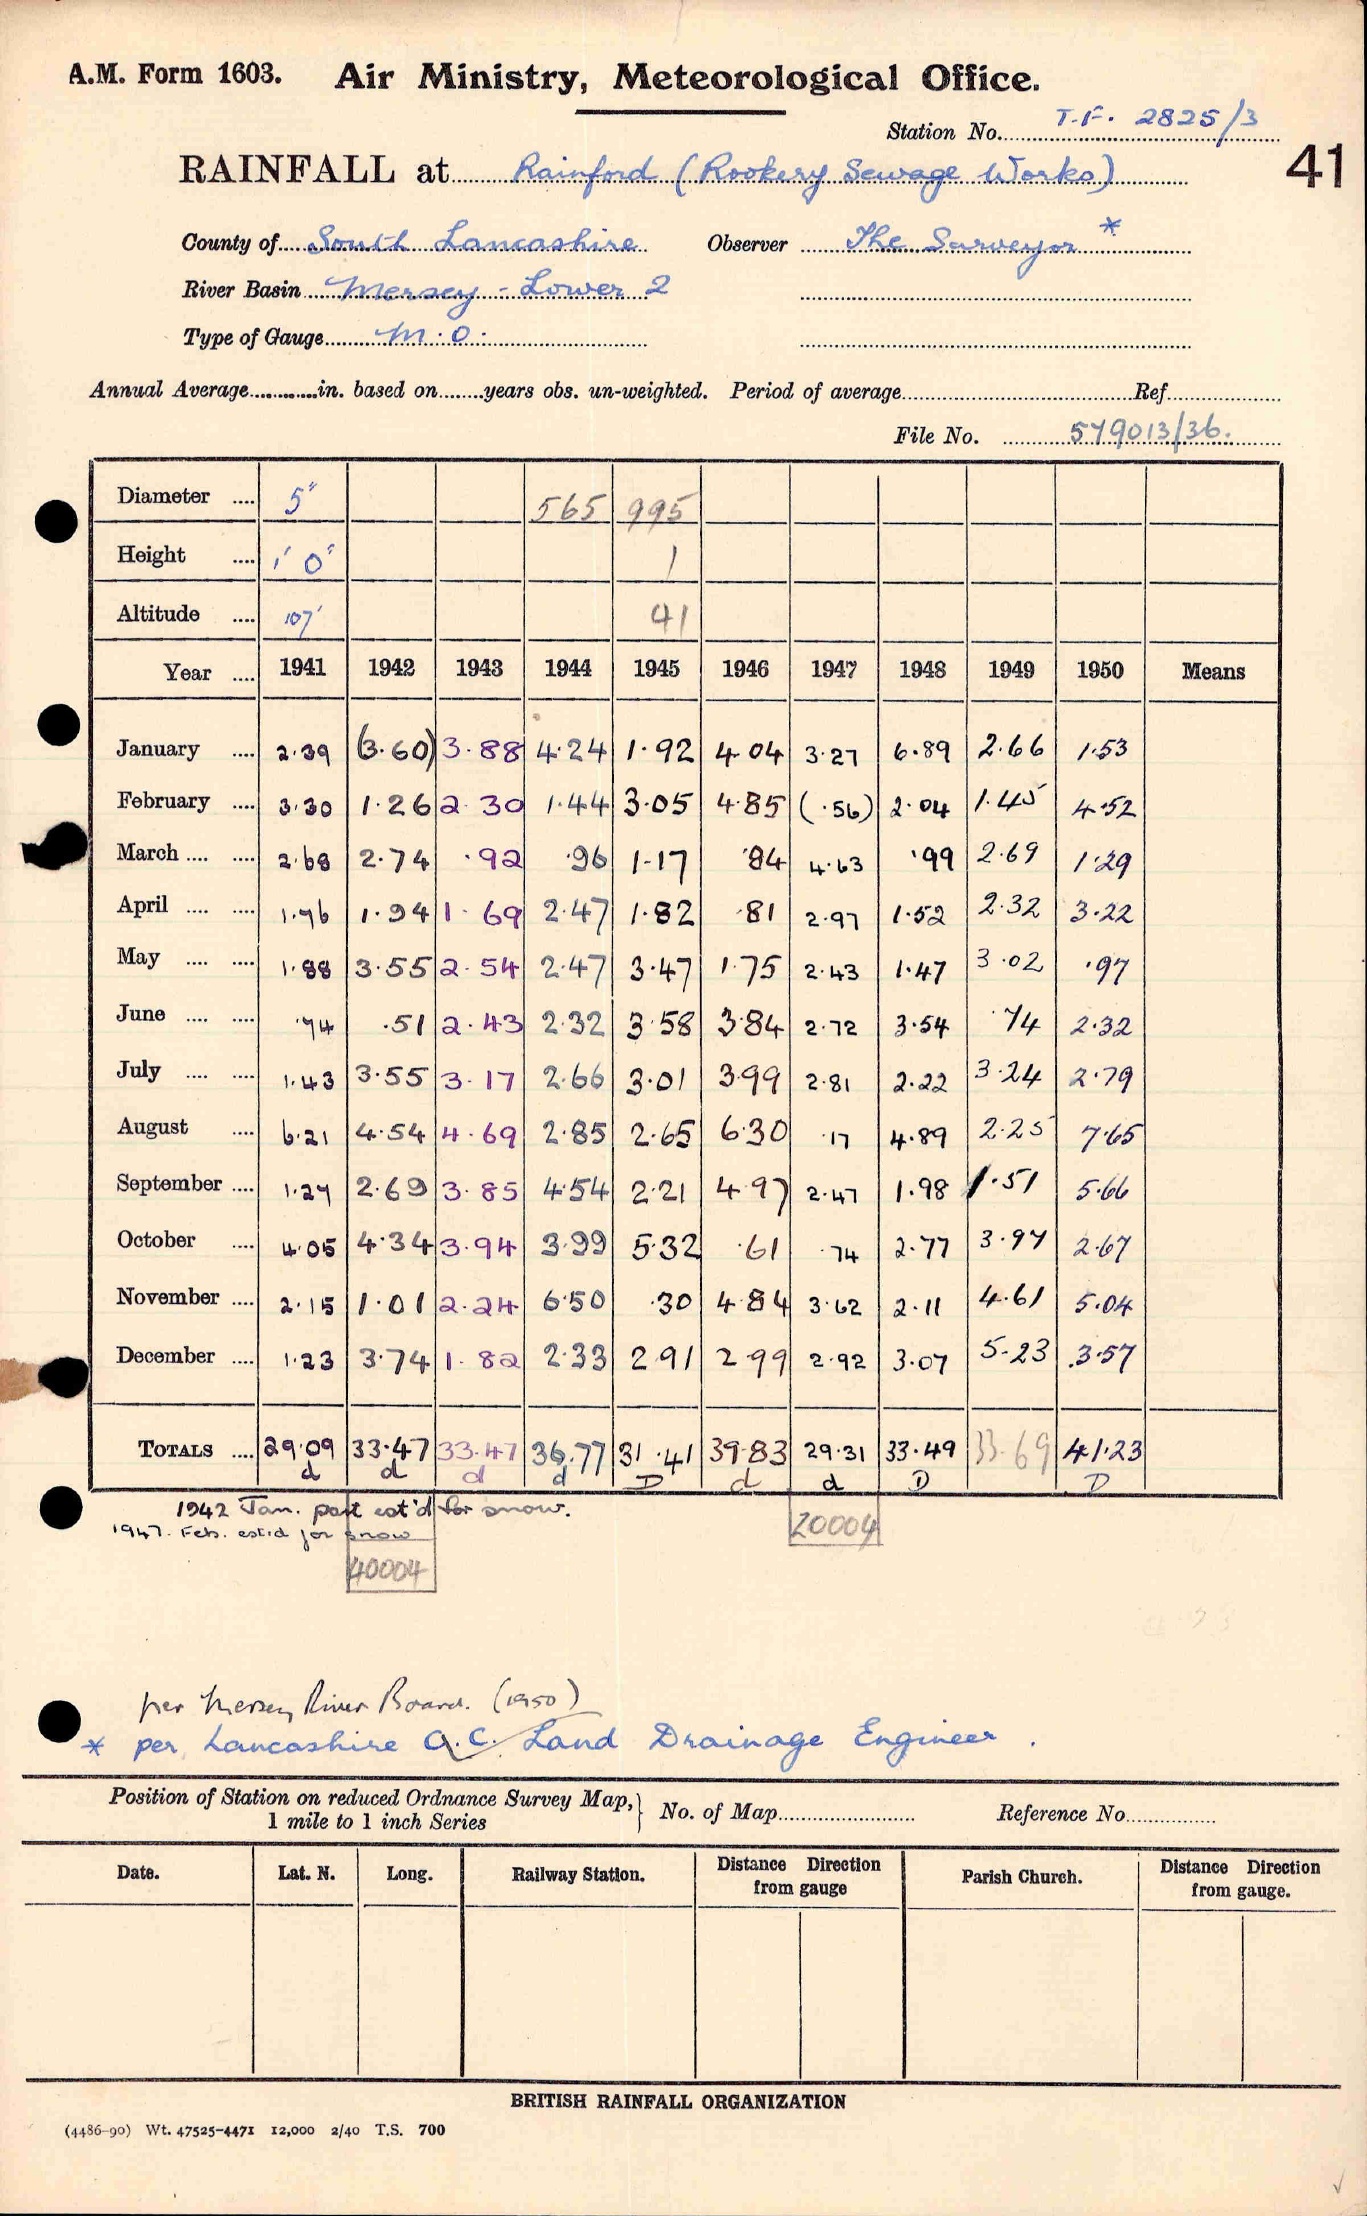 A.M. Form 1603. Air Ministry, Meteorological Office.
Station No. T.F. 2825/3
41
RAINFALL at Rainford (Rookery Sewage Works)
County of South Lancashire Observer The Surveyor *
River Basin Mersey - Lower 2
Type of Gauge M.O.
Annual Average............in. based on........years obs. un-weighted. Period of average........Ref........
File No. 579013/36.
Diameter .... 5" 565 995
Height .... 1' 0" 1
Altitude .... 107' 41
Year .... 1941 1942 1943 1944 1945 1946 1947 1948 1949 1950 Means
January .... 2.39 (3.60) 3.88 4.24 1.92 4.04 3.27 6.89 2.66 1.53
February .... 3.30 1.26 2.30 1.44 3.05 4.85 (.56) 2.04 1.45 4.52
March .... .... 2.68 2.74 .92 .96 1.17 .84 4.63 .99 2.69 1.29
April .... .... 1.76 1.94 1.69 2.47 1.82 .81 2.97 1.52 2.32 3.22
May .... .... 1.88 3.55 2.54 2.47 3.47 1.75 2.43 1.47 3.02 .97
June .... .... .74 .51 2.43 2.32 3.58 3.84 2.72 3.54 .74 2.32
July .... .... 1.43 3.55 3.17 2.66 3.01 3.99 2.81 2.22 3.24 2.79
August .... 6.21 4.54 4.69 2.85 2.65 6.30 .17 4.89 2.25 7.65
September .... 1.27 2.69 3.85 4.54 2.21 4.97 2.47 1.98 1.51 5.66
October .... 4.05 4.34 3.94 3.99 5.32 .61 .74 2.77 3.97 2.67
November .... 2.15 1.01 2.24 6.50 .30 4.84 3.62 2.11 4.61 5.04
December .... 1.23 3.74 1.82 2.33 2.91 2.99 2.92 3.07 5.23 3.57
TOTALS .... 29.09 33.47 33.47 36.77 31.41 39.83 29.31 33.49 33.69 41.23
d d d d D d d D D
1942 Jan. part est'd for snow.
1947. Feb. est:d for snow
20004
40004
per Mersey River Board. (1950)
* per Lancashire C.C. Land Drainage Engineer .
Position of Station on reduced Ordnance Survey Map, 1 mile to 1 inch Series } No. of Map........ Reference No........
Date. Lat. N. Long. Railway Station. Distance Direction from gauge Parish Church. Distance Direction from gauge.
BRITISH RAINFALL ORGANIZATION
(4486-90) Wt. 47525-4471 12,000 2/40 T.S. 700